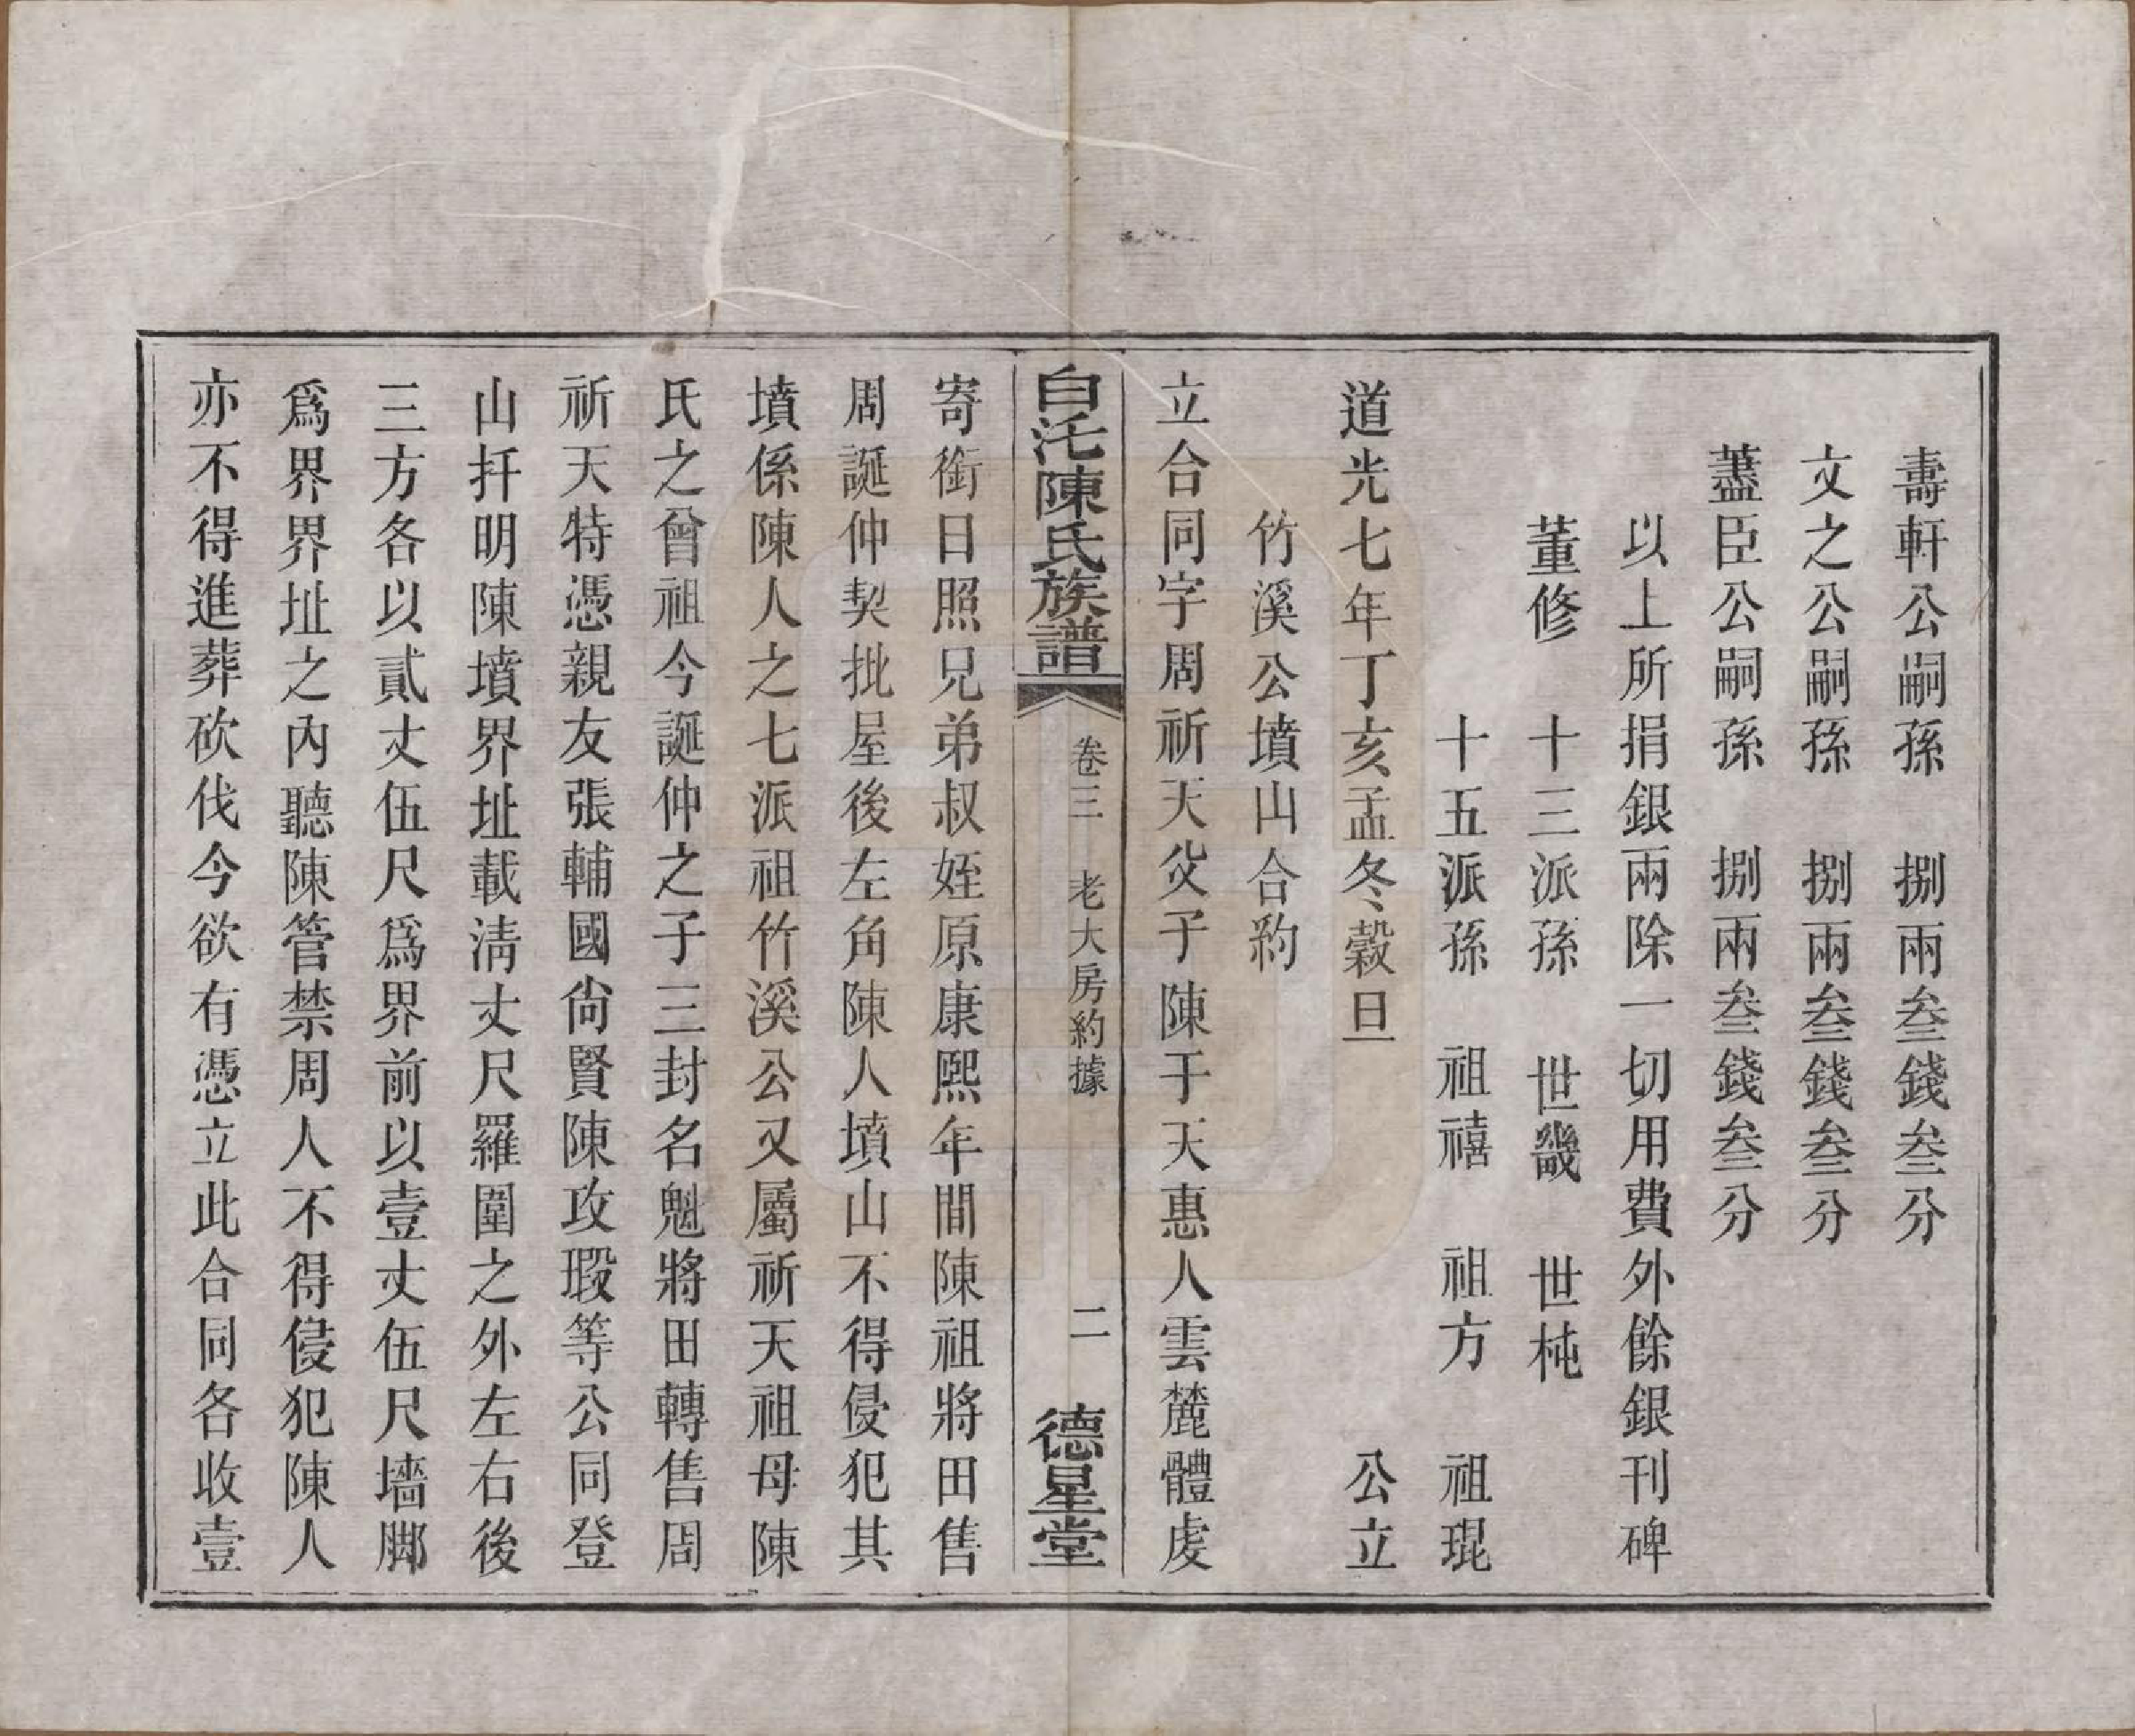 壽軒公嗣孫　捌兩叁錢叁分
文之公嗣孫　捌兩叁錢叁分
藎臣公嗣孫　捌兩叁錢叁分
以上所捐銀兩除一切用費外餘銀刊碑
董修　十三派孫　世畿　世杶
十五派孫　祖禧　祖方　祖琨
道光七年丁亥孟冬穀旦　公立
竹溪公墳山合約
立合同字周祈天父子陳于天惠人雲麓體虔
白沱陳氏族譜　卷三　老大房約據　二　德星堂
寄銜日照兄弟叔姪原康熙年間陳祖將田售
周誕仲契批屋後左角陳人墳山不得侵犯其
墳係陳人之七派祖竹溪公又屬祈天祖母陳
氏之曾祖今誕仲之子三封名魁將田轉售周
祈天特憑親友張輔國尙賢陳攻瑖等公同登
山扦明陳墳界址載淸丈尺羅圍之外左右後
三方各以貳丈伍尺爲界前以壹丈伍尺墻脚
爲界界址之內聽陳管禁周人不得侵犯陳人
亦不得進葬砍伐今欲有憑立此合同各收壹